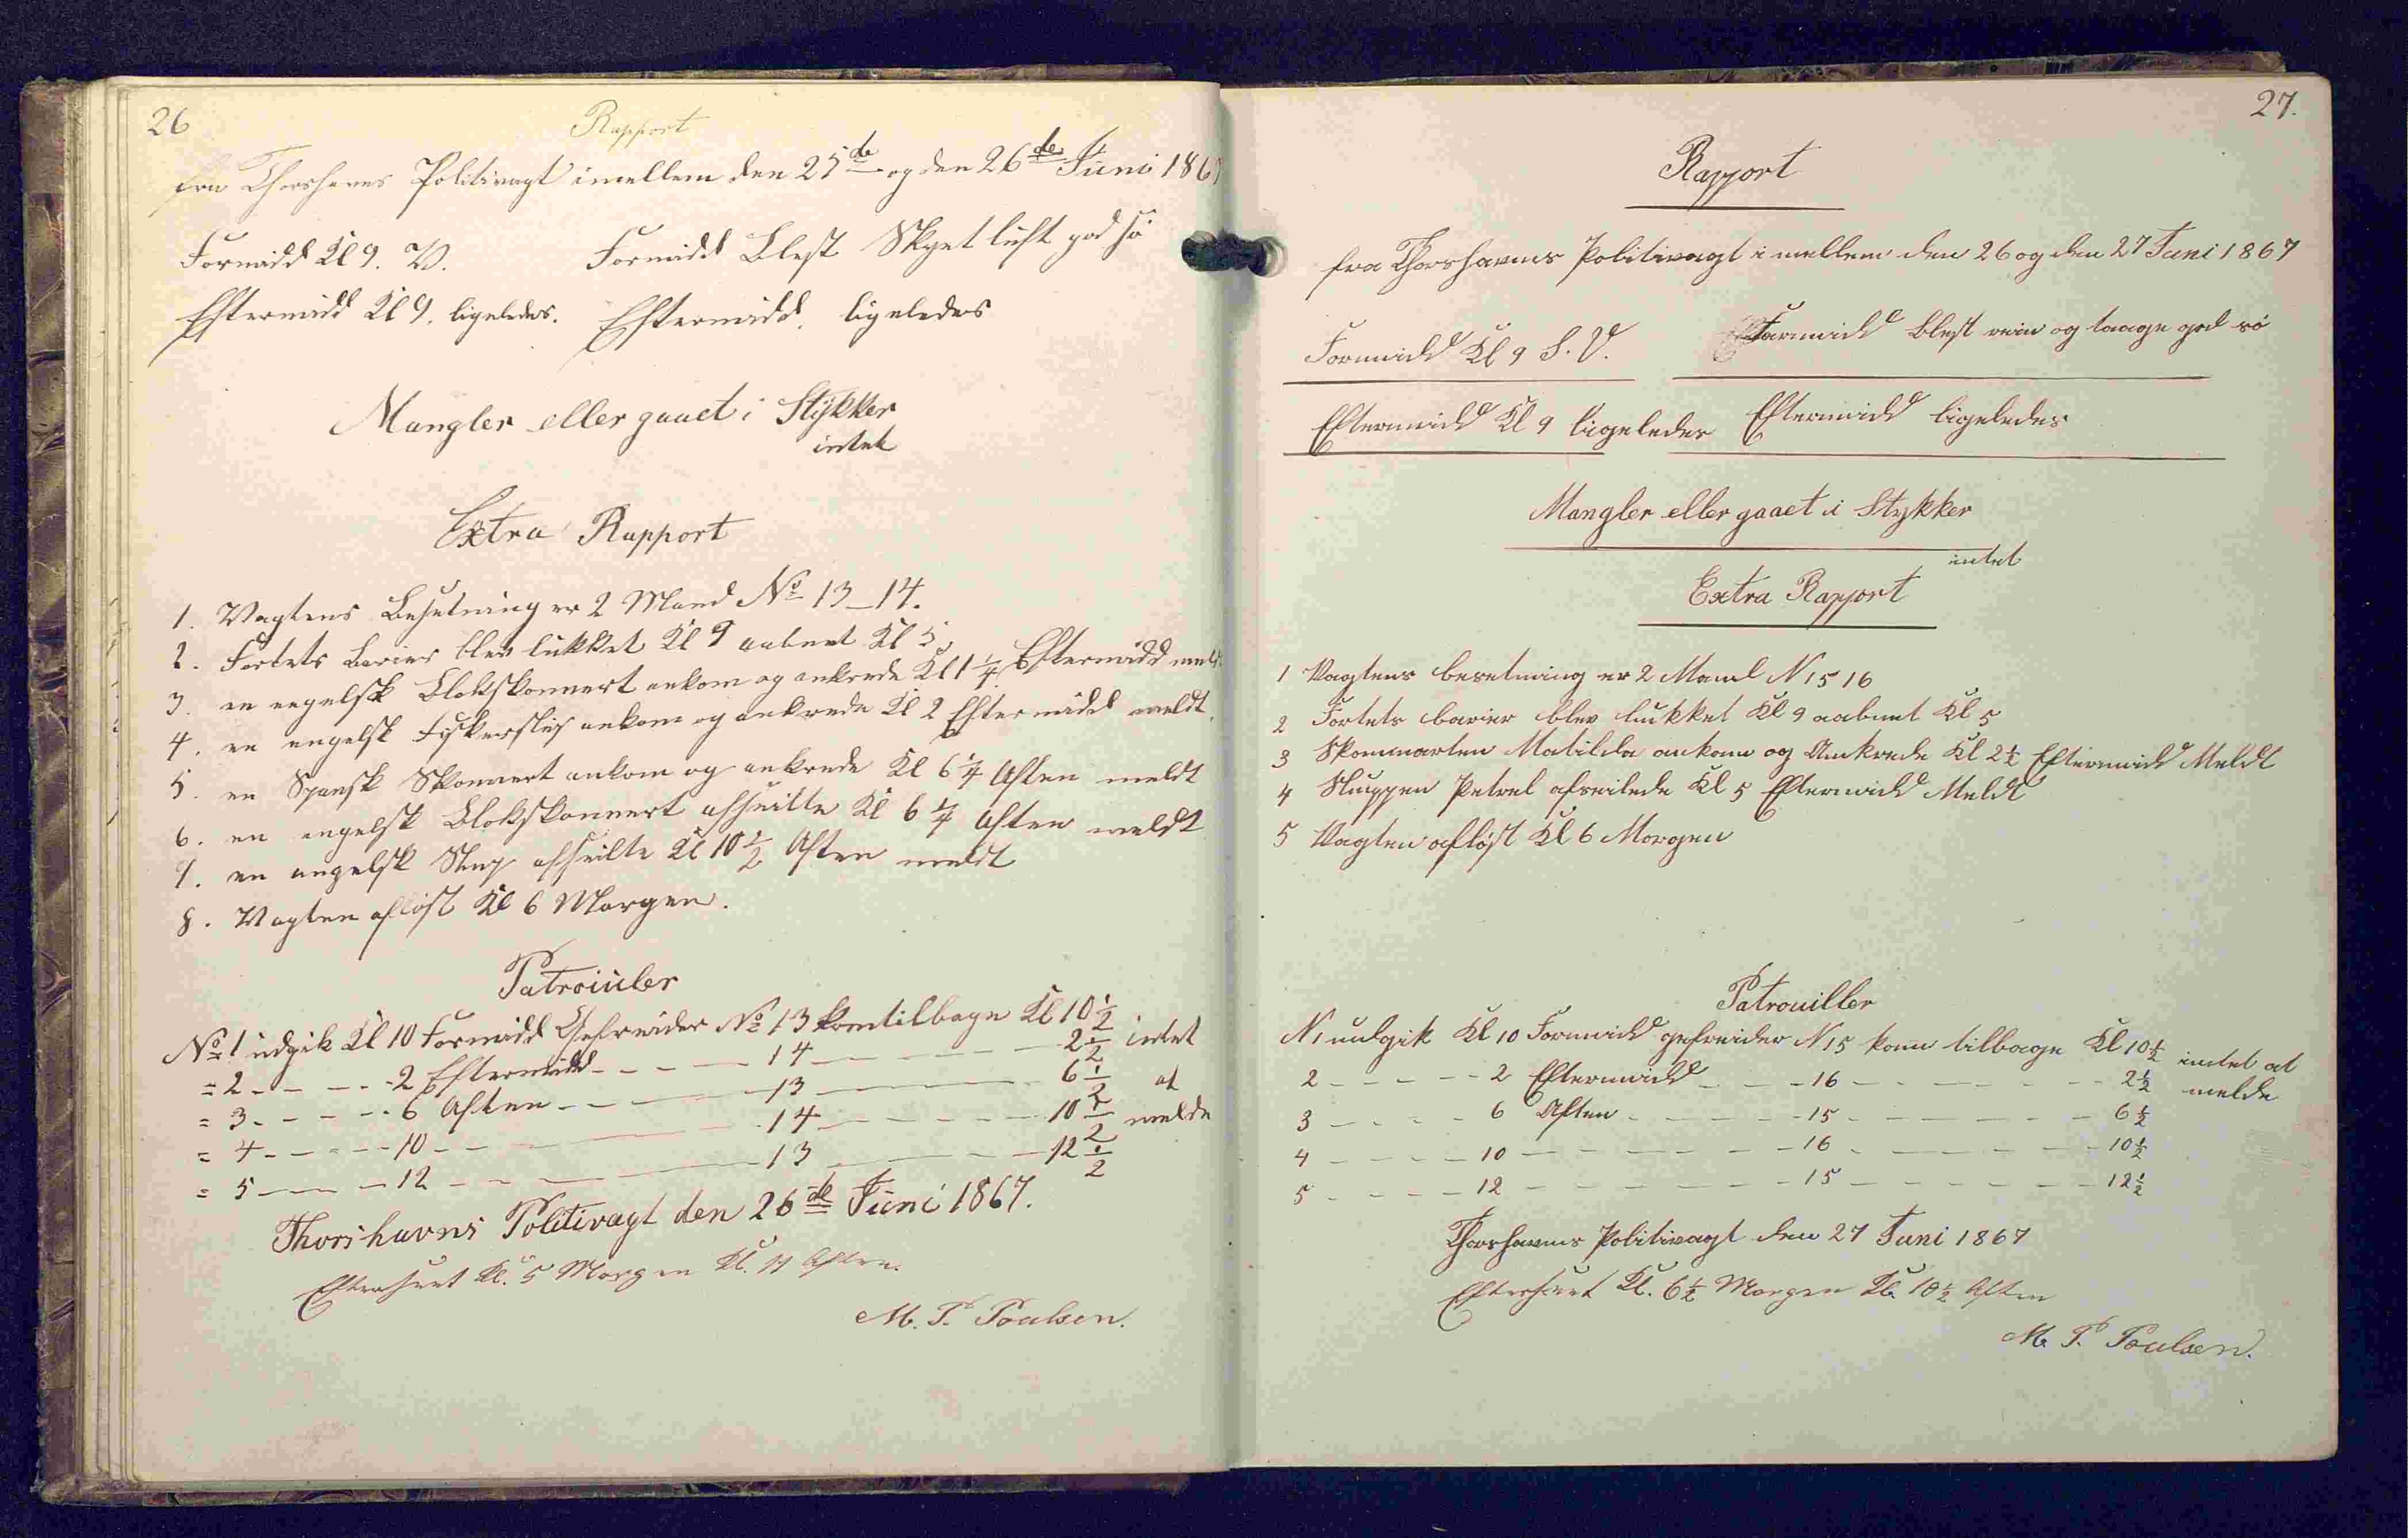 26
Rapport
fra Thorshavns Politivagt imellem den 25de og den 26de Juni 1867
Formidd Kl 9. V. Formidd Blest Skyet luft god sö
Eftermidd Kl 9. ligeledes. Eftermidd. ligeledes
Mangler eller gaaet i Stÿkker
intet
Extra Rapport
1. Vagtens Besetning er 2 Mand No 13_14.
2. Fortets Barier blev lukket Kl 9 aabnet Kl 5.
3. en engelsk Slokskonnert ankom og ankrede Kl 1 1/4 Eftermidd meldt
4. en engelsk Fiskerslup ankom og ankrede Kl 2 Eftermidd meldt.
5. en Spansk Skonnert ankom og ankrede Kl 6 1/4 Aften meldt
6. en engelsk Slokskonnert afseilte Kl 6 1/4 Aften meldt
7. en engelsk Slup afseilte Kl 10 1/2 Aften meldt
8. Vagten aflöst Kl 6 Morgen.
Patroiuler
No 1 udgik Kl 10 Formidd Gefreider No 13 kom tilbage Kl 10 1/2 intet
= 2 - - - - 2 Eftermidd - - - 14 - - - - 2 1/2
= 3 - - - - 6 Aften - - - 13 - - - 6 1/2 at
= 4 - - - - 10 - - - 14 - - - - 10 1/2 melde
= 5 - - - 12 - - - 13 - - - 12 1/2
Thorshavns Politivagt den 26de Juni 1867.
Efterseet Kl. 5 Morgen Kl. 11 Aften.
M. P. Poulsen.
27.
Rapport
fra Thorshavns Politivagt i mellem den 26 og den 27 Juni 1867
Formidd Kl 9 S. V. Formidd blest rein og taage god sö
Eftermidd Kl 9 ligeledes Eftermidd ligeledes
Mangler eller gaaet i Stykker
intet
Extra Rapport
1 Vagtens besetning er 2 Mand N 15 16
2 Fortets barier blev lukket Kl 9 aabnet Kl 5
3 Skonnarten Matilda ankom og Ankrede Kl 2 1/2 Eftermidd Meldt
4 Sluppen Petrel afseilede Kl 5 Eftermidd Meldt
5 Vagten aflöst Kl 6 Morgen
Patrouiller
N 1 uudgik Kl 10 Formidd gefreider N 15 kom tilbage Kl 10 1/2 intet at
2 - - - - - 2 Eftermidd - - - 16 - - - - - - 2 1/2 melde
3 - - - - 6 Aften - - - - 15 - - - - - - 6 1/2
4 - - - - 10 - - - - - - 16 - - - - - - 10 1/2
5 - - - - 12 - - - - - - 15 - - - - - - 12 1/2
Thorshavns Politivagt den 27 Juni 1867
Efterseet Kl. 6 1/2 Morgen Kl. 10 1/2 Aften
M. P. Poulsen.